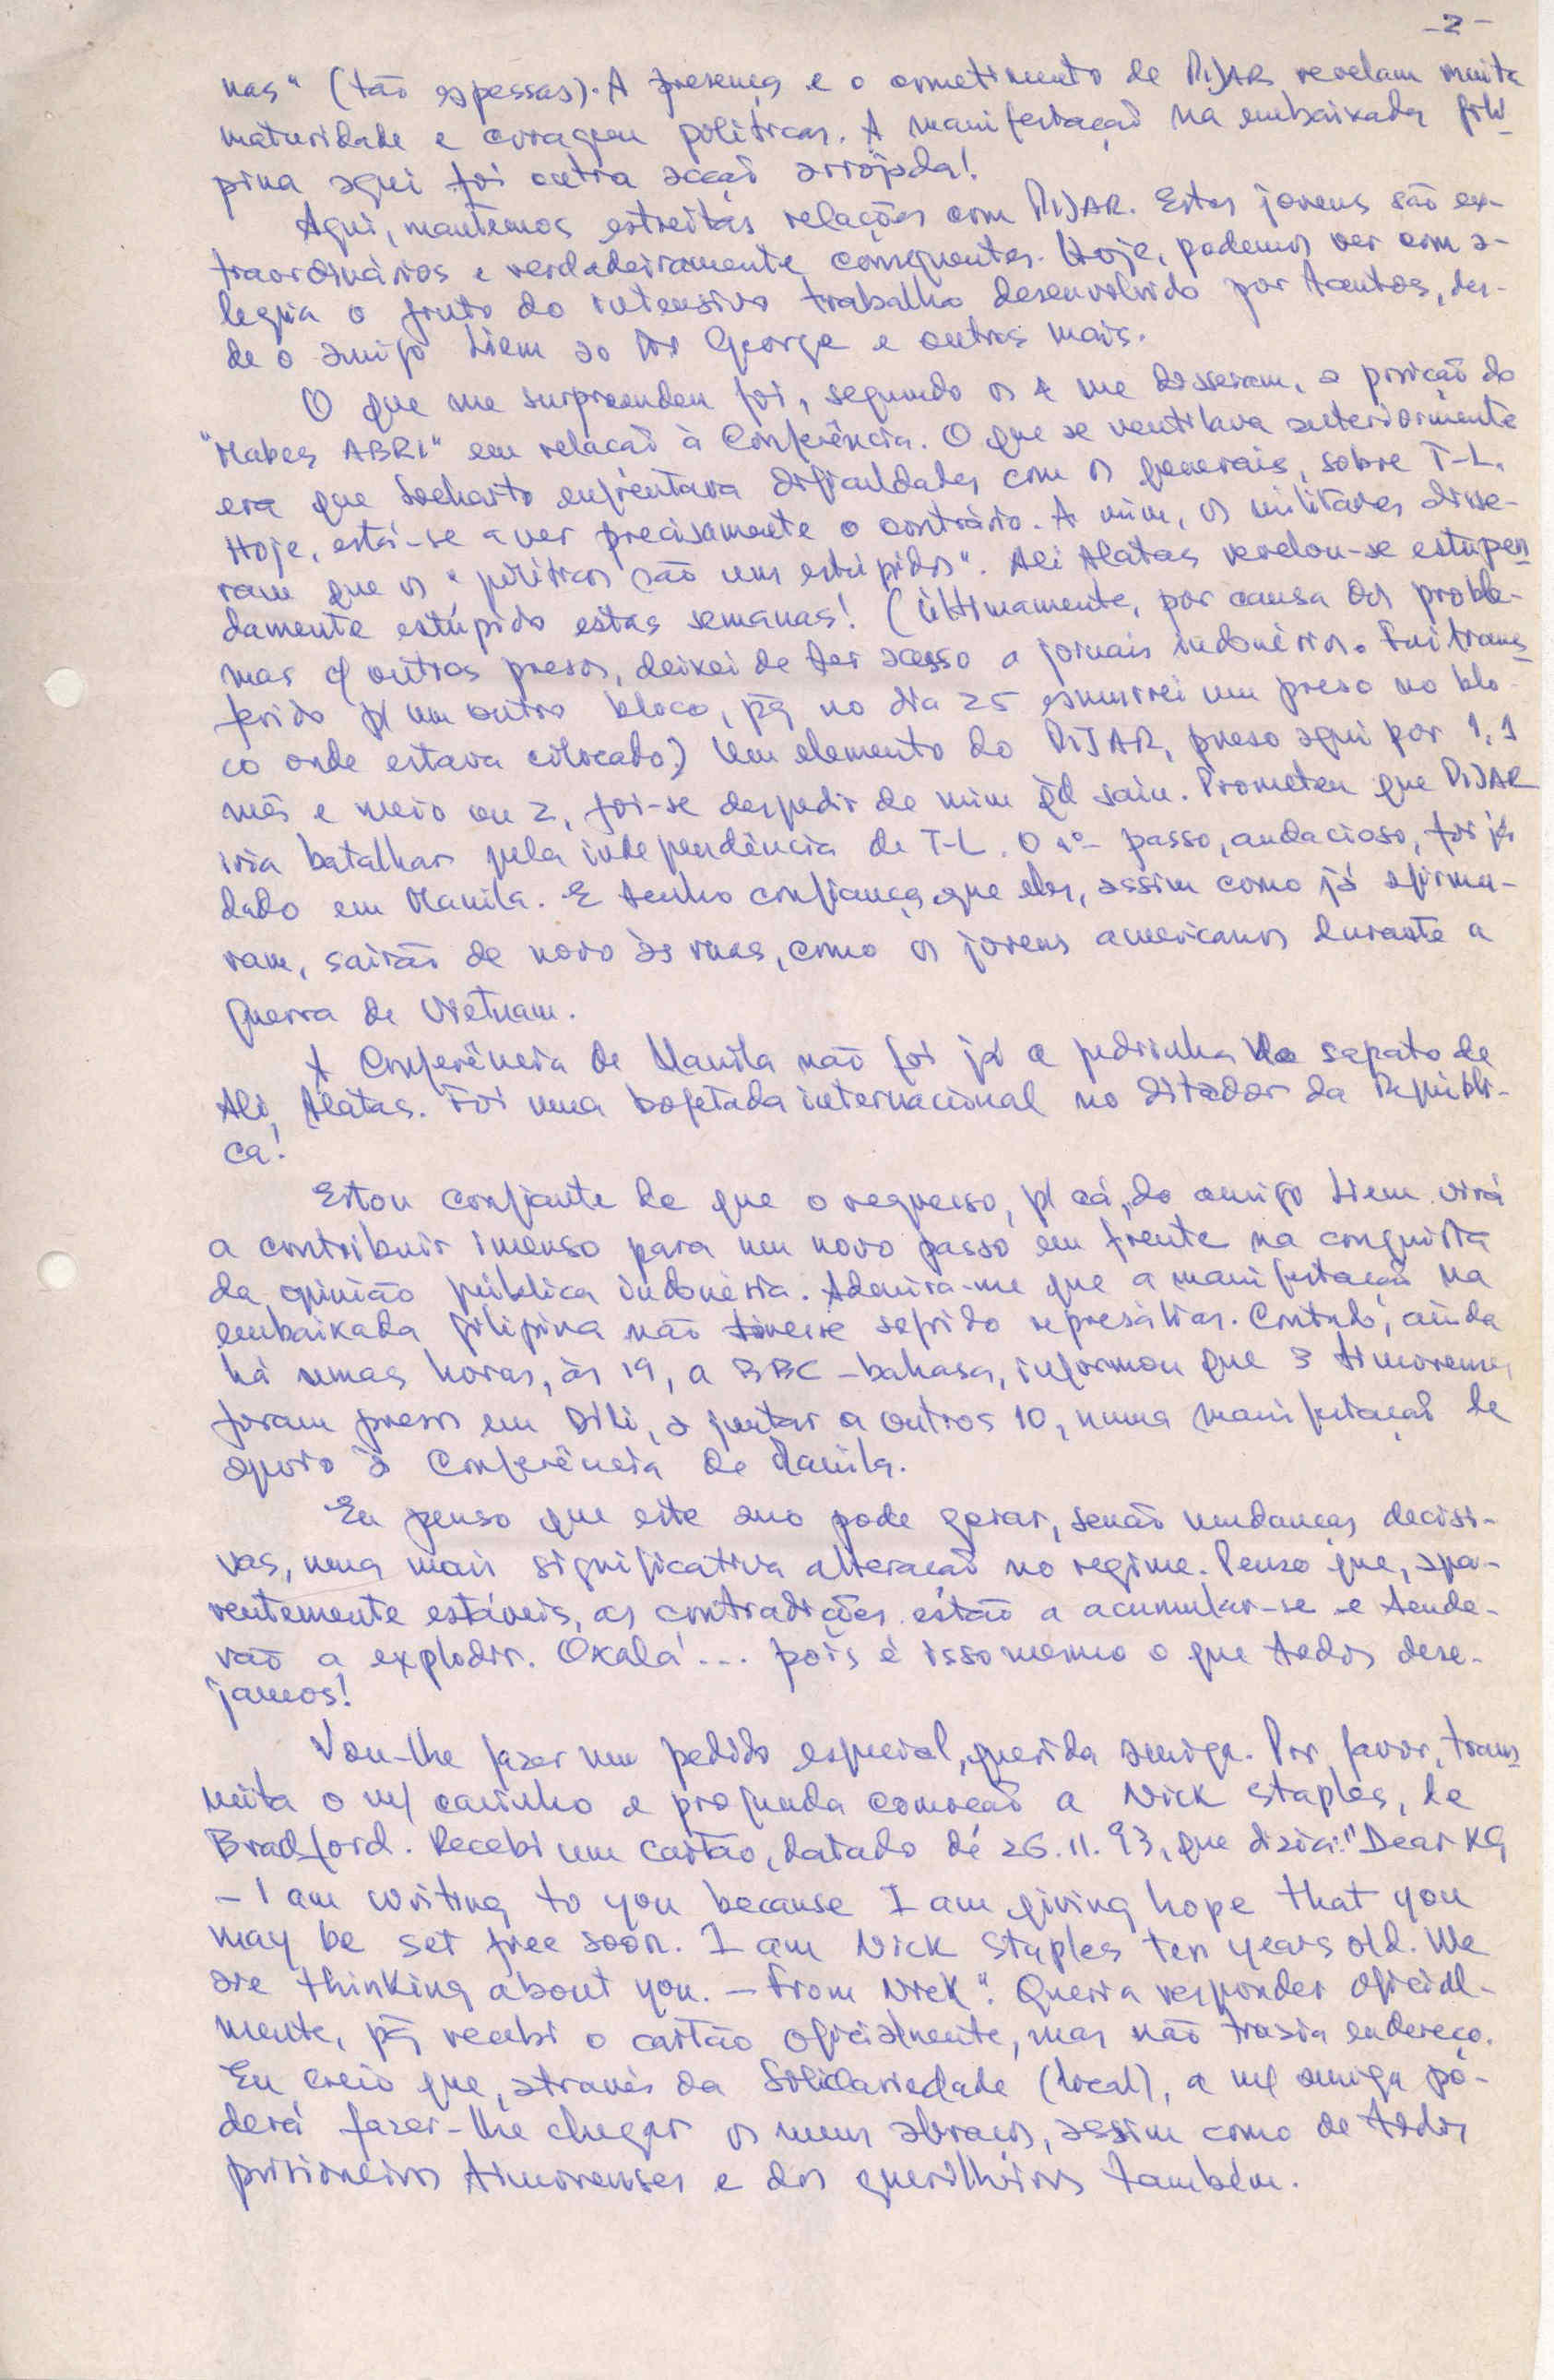 - 2 -
nas" (tão espessas). A presença e o cometimento de PIJAR revelam muita
maturidade e coragem políticas. A manifestação na embaixada fili-
pina aqui foi outra acção arrojada!
Aqui, mantemos estreitas relações com PIJAR. Estes jovens são ex-
traordinários e verdadeiramente consequentes. Hoje, podemos ver com a-
legria o fruto do intensivo trabalho desenvolvido por tantos, des-
de o amigo Liem ao George e outros mais.
O que me surpreendeu foi, segundo os 4 me disseram, a posição do
"Mabes ABRI" em relação à Conferência. O que se ventilava anteriormente
era que Soeharto enfrentava dificuldades com os generais, sobre T-L.
Hoje, está-se a ver precisamente o contrário. A mim, os militares disse-
ram que os "políticos são uns estúpidos". Ali Alatas revelou-se estupen
damente estúpido estas semanas! (Ultimamente, por causa dos proble-
mas c/ outros presos, deixei de ter acesso a jornais indonésios. Fui trans
ferido p/ um outro bloco, pq no dia 25 esmurrei um preso no blo-
co onde estava colocado) Um elemento do PIJAR, preso aqui por 1, 1
mês e meio ou 2, foi-se despedir de mim qd saiu. Prometeu que PIJAR
iria batalhar pela independência de T-L. O 1º passo, audacioso, foi já
dado em Manila. E tenho confiança que eles, assim como já afirma-
ram, sairão de novo às ruas, como os jovens americanos durante a
guerra de Vietnam.
A Conferência de Manila não foi já a pedrinha no sapato de
Ali Alatas. Foi uma bofetada internacional no ditador da Repúbli-
ca!
Estou confiante de que o regresso, p/ cá, do amigo Liem virá
a contribuir imenso para um novo passo em frente na conquista
da opinião pública indonésia. Admira-me que a manifestação na
embaixada filipina não tivesse sofrido represálias. Contudo, ainda
há umas horas, às 19, a BBC-bahasa, informou que 3 timorenses
foram presos em Dili, a juntar a outros 10, numa manifestação de
apoio à Conferência de Manila.
Eu penso que este ano pode gerar, senão mudanças decisi-
vas, uma mais significativa alteração no regime. Penso que, apa-
rentemente estáveis, as contradições estão a acumular-se e tende-
rão a explodir. Oxalá!... pois é isso mesmo o que todos dese-
jamos!
Vou-lhe fazer um pedido especial, querida amiga. Por favor, trans
mita o m/ carinho e profunda comoção a Nick Staples, de
Bradford. Recebi um cartão, datado de 26.11.93, que dizia: "Dear XG
- I am writing to you because I am giving hope that you
may be set free soon. I am Nick Staples ten years old. We
are thinking about you. - From Nick". Queria responder oficial-
mente, pq recebi o cartão oficialmente, mas não trazia endereço.
Eu creio que, através da Solidariedade (local), a m/ amiga po-
derá fazer-lhe chegar os meus abraços, assim como de todos
prisioneiros timorenses e dos guerrilheiros também.